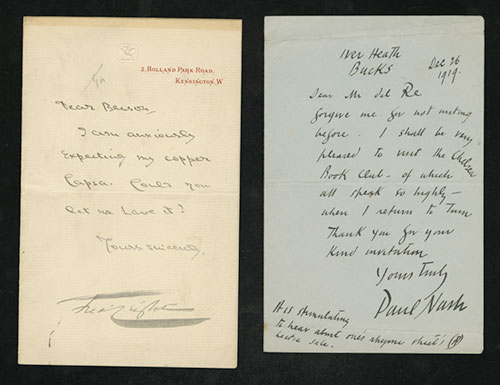 2, HOLLAND PARK ROAD,
KENSINGTON, W.
Dear Benson,
I am anxiously
expecting my copper
Could you
let me have it?
Yours sincerely,
Fred Leighton
Iver Heath
Bucks
Dec 26
1919.
Dear Mr del Re
forgive me for not writing
before. I shall be very
pleased to visit the Chelsea
Book Club - of which
all speak so highly -
when I return to Town
Thank you for your
kind invitation
Yours truly
Paul Nash
It is stimulating
to hear about one's rhyme sheet's
hectic sale.